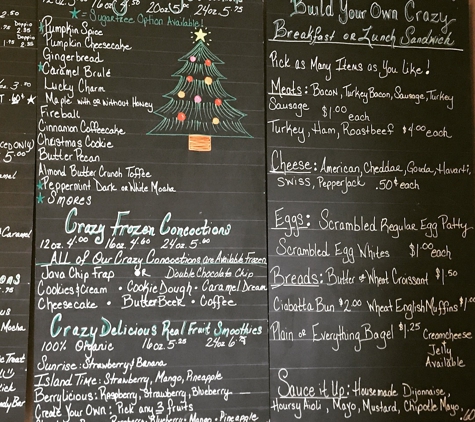 12oz 16oz 20oz 5.25 24oz 5.75
★ = Sugarfree Option Available!
Pumpkin Spice
Pumpkin Cheesecake
Gingerbread
★ Caramel Brulé
Lucky Charm
Maple with or without Honey
Fireball
Cinnamon Coffeecake
Christmas Cookie
Butter Pecan
Almond Butter Crunch Toffee
★ Peppermint Dark or White Mocha
★ S'mores
Crazy Frozen Concoctions
12oz. 4.00 16oz. 4.60 24oz. 5.00
ALL of Our Crazy Concoctions are Available Frozen
Java Chip Frap OR Double Chocolate Chip
Cookies & Cream • Cookie Dough • Caramel Dream
Cheesecake • ButterBeer • Coffee
Crazy Delicious Real Fruit Smoothies
100% Organic 16oz 5.25 24oz 6.75
Sunrise: Strawberry & Banana
Island Time: Strawberry, Mango, Pineapple
Berrylicious: Raspberry, Strawberry, Blueberry
Create Your Own: Pick any 3 fruits
Blueberry • Mango • Pineapple
Build Your Own Crazy
Breakfast or Lunch Sandwich
Pick as Many Items as You like!
Meats: Bacon, Turkey Bacon, Sausage, Turkey
Sausage $1.00 each
Turkey, Ham, Roastbeef $4.00 each
Cheese: American, Cheddar, Gouda, Havarti,
Swiss, Pepperjack .50¢ each
Eggs: Scrambled Regular Egg Patty
Scrambled Egg Whites $1.00 each
Breads: Butter or Wheat Croissant $1.50
Ciabatta Bun $2.00 Wheat English Muffins $1
Plain or Everything Bagel $1.25 Creamcheese
Jelly
Available
Sauce it Up: Housemade Dijonnaise,
Horsey Aioli, Mayo, Mustard, Chipotle Mayo